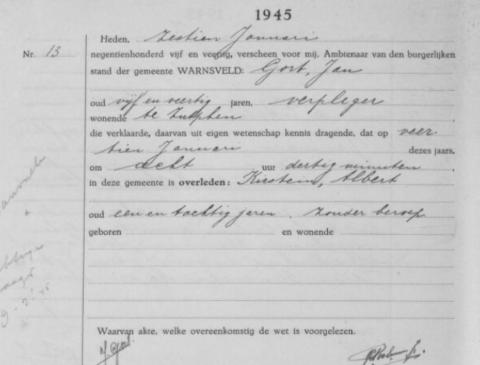 1945
Heden, zestien Januari
Nr. 13 negentienhonderd vijf en veertig, verscheen voor mij, Ambtenaar van den burgerlijken
stand der gemeente WARNSVELD: Gort, Jan
oud vijf en veertig jaren, verpleger
wonende te Zutphen
die verklaarde, daarvan uit eigen wetenschap kennis dragende, dat op veer
tien Januari dezes jaars,
om acht uur dertig minuten
in deze gemeente is overleden: Kusters, Albert
oud een en tachtig jaren, zonder beroep
geboren en wonende
Waarvan akte, welke overeenkomstig de wet is voorgelezen.